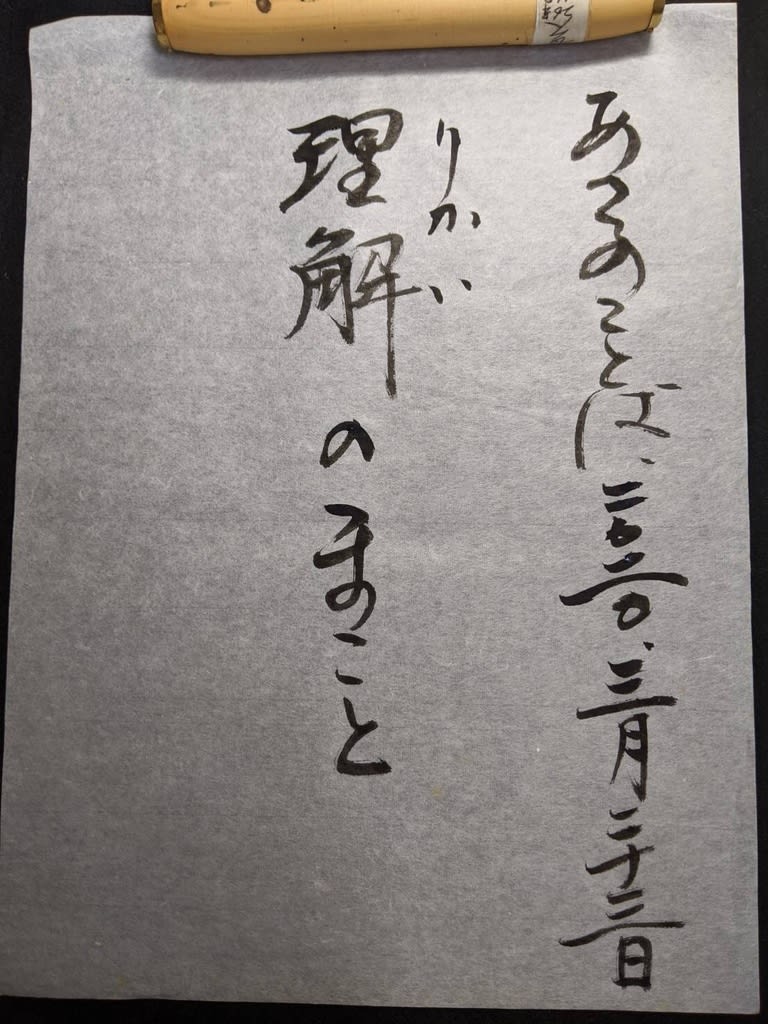 ことば、二〇二〇、三月二十三日
りかい
理解のまのこと